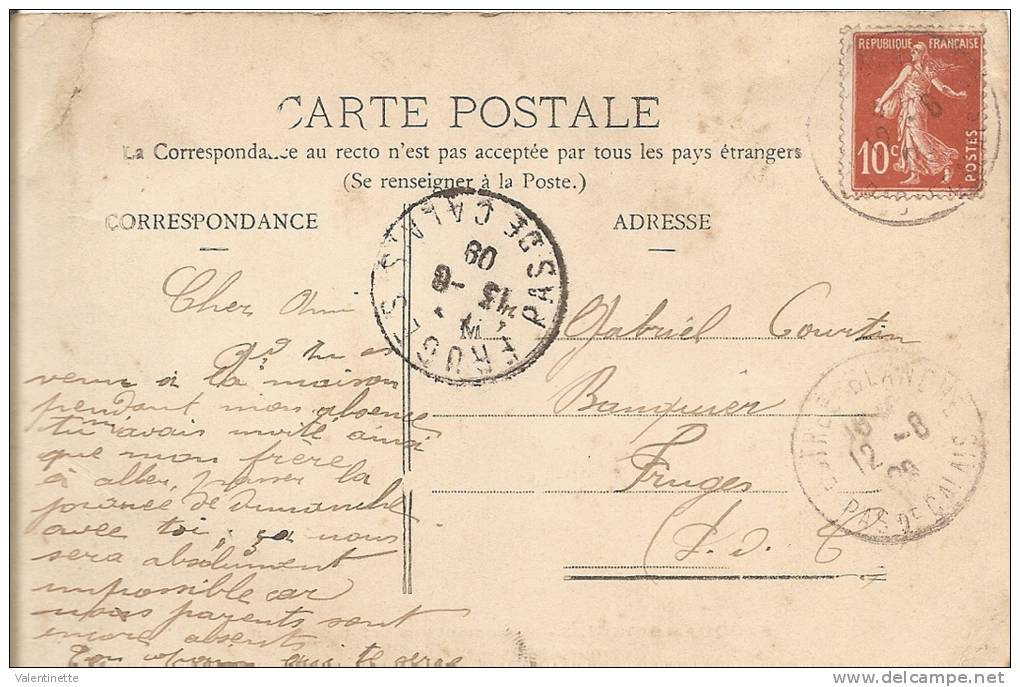 RÉPUBLIQUE FRANÇAISE
10c
POSTES
CARTE POSTALE
La Correspondance au recto n'est pas acceptée par tous les pays étrangers
(Se renseigner à la Poste.)
CORRESPONDANCE
ADRESSE
FRUGES
PAS DE CALAIS
13 -8
09
BLANCHE
12 -8
09
PAS DE CALAIS
Cher Ami
tu es
venu à la maison
pendant mon absence
tu m'avais invité ainsi
que mon frère
à aller passer la
journée de dimanche
avec toi; ça nous
sera absolument
impossible car
nous parents sont
encore absents
Ton qui te serre
Gabriel Courtin
Banquier
Fruges
P. d. C
Valentinette
www.delcampe.net